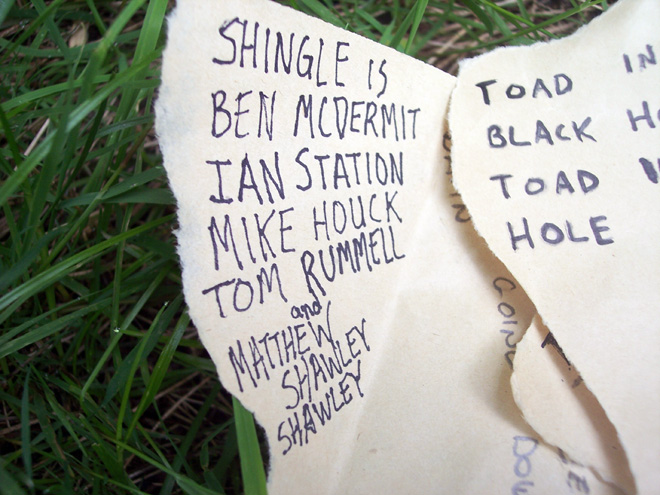 SHINGLE IS
BEN MCDERMIT
IAN STATION
MIKE HOUCK
TOM RUMMELL
and
MATTHEW
SHAWLEY
SHAWLEY
TOAD IN
BLACK
TOAD
HOLE